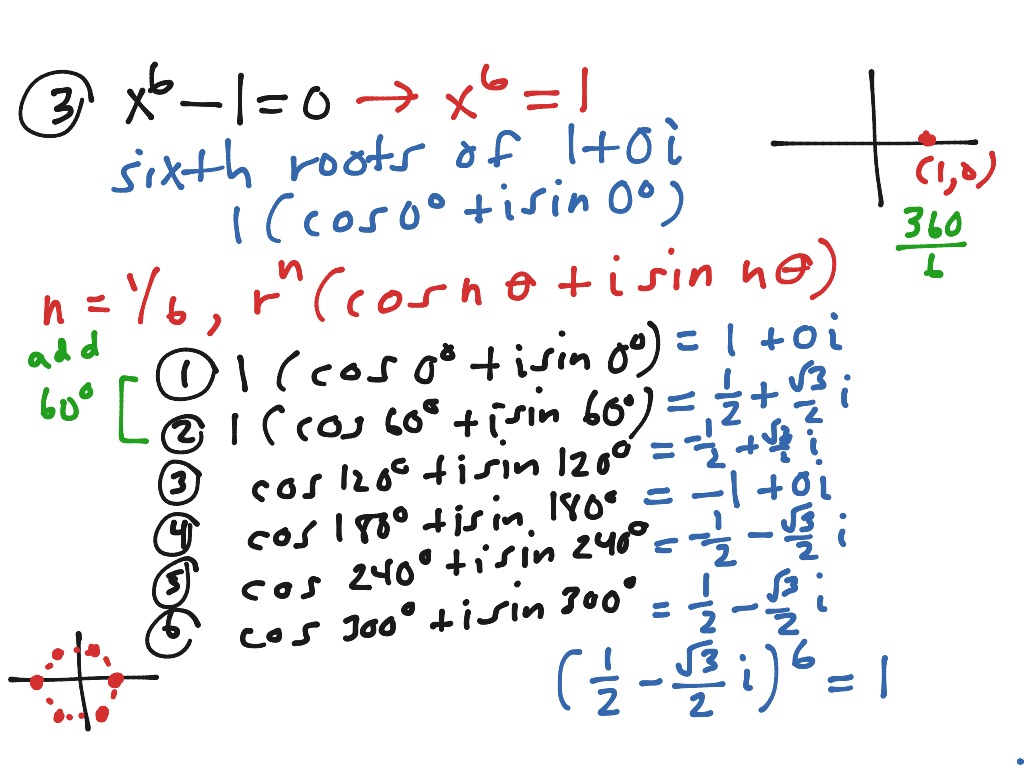 ③ x⁶ − 1 = 0 → x⁶ = 1
sixth roots of 1 + 0i
1 (cos 0° + i sin 0°)
(1, 0)
360/6
n = 1/6, rⁿ (cos n θ + i sin n θ)
add
60°
① 1 (cos 0° + i sin 0°) = 1 + 0i
② 1 (cos 60° + i sin 60°) = 1/2 + √3/2 i
③ cos 120° + i sin 120° = −1/2 + √3/2 i
④ cos 180° + i sin 180° = −1 + 0i
⑤ cos 240° + i sin 240° = −1/2 − √3/2 i
⑥ cos 300° + i sin 300° = 1/2 − √3/2 i
(1/2 − √3/2 i)⁶ = 1